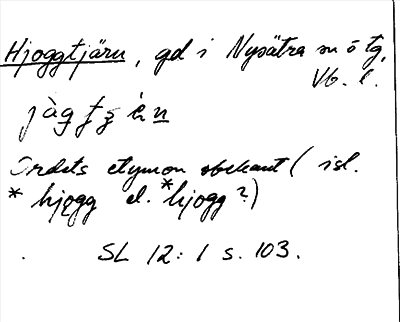 Hjoggtjärn, gd i Nysätra sn ö tg,
Vb. l.
Ordets etymon obekant (isl.
* hjǫgg el. *hjogg?)
SL 12:1 s. 103.